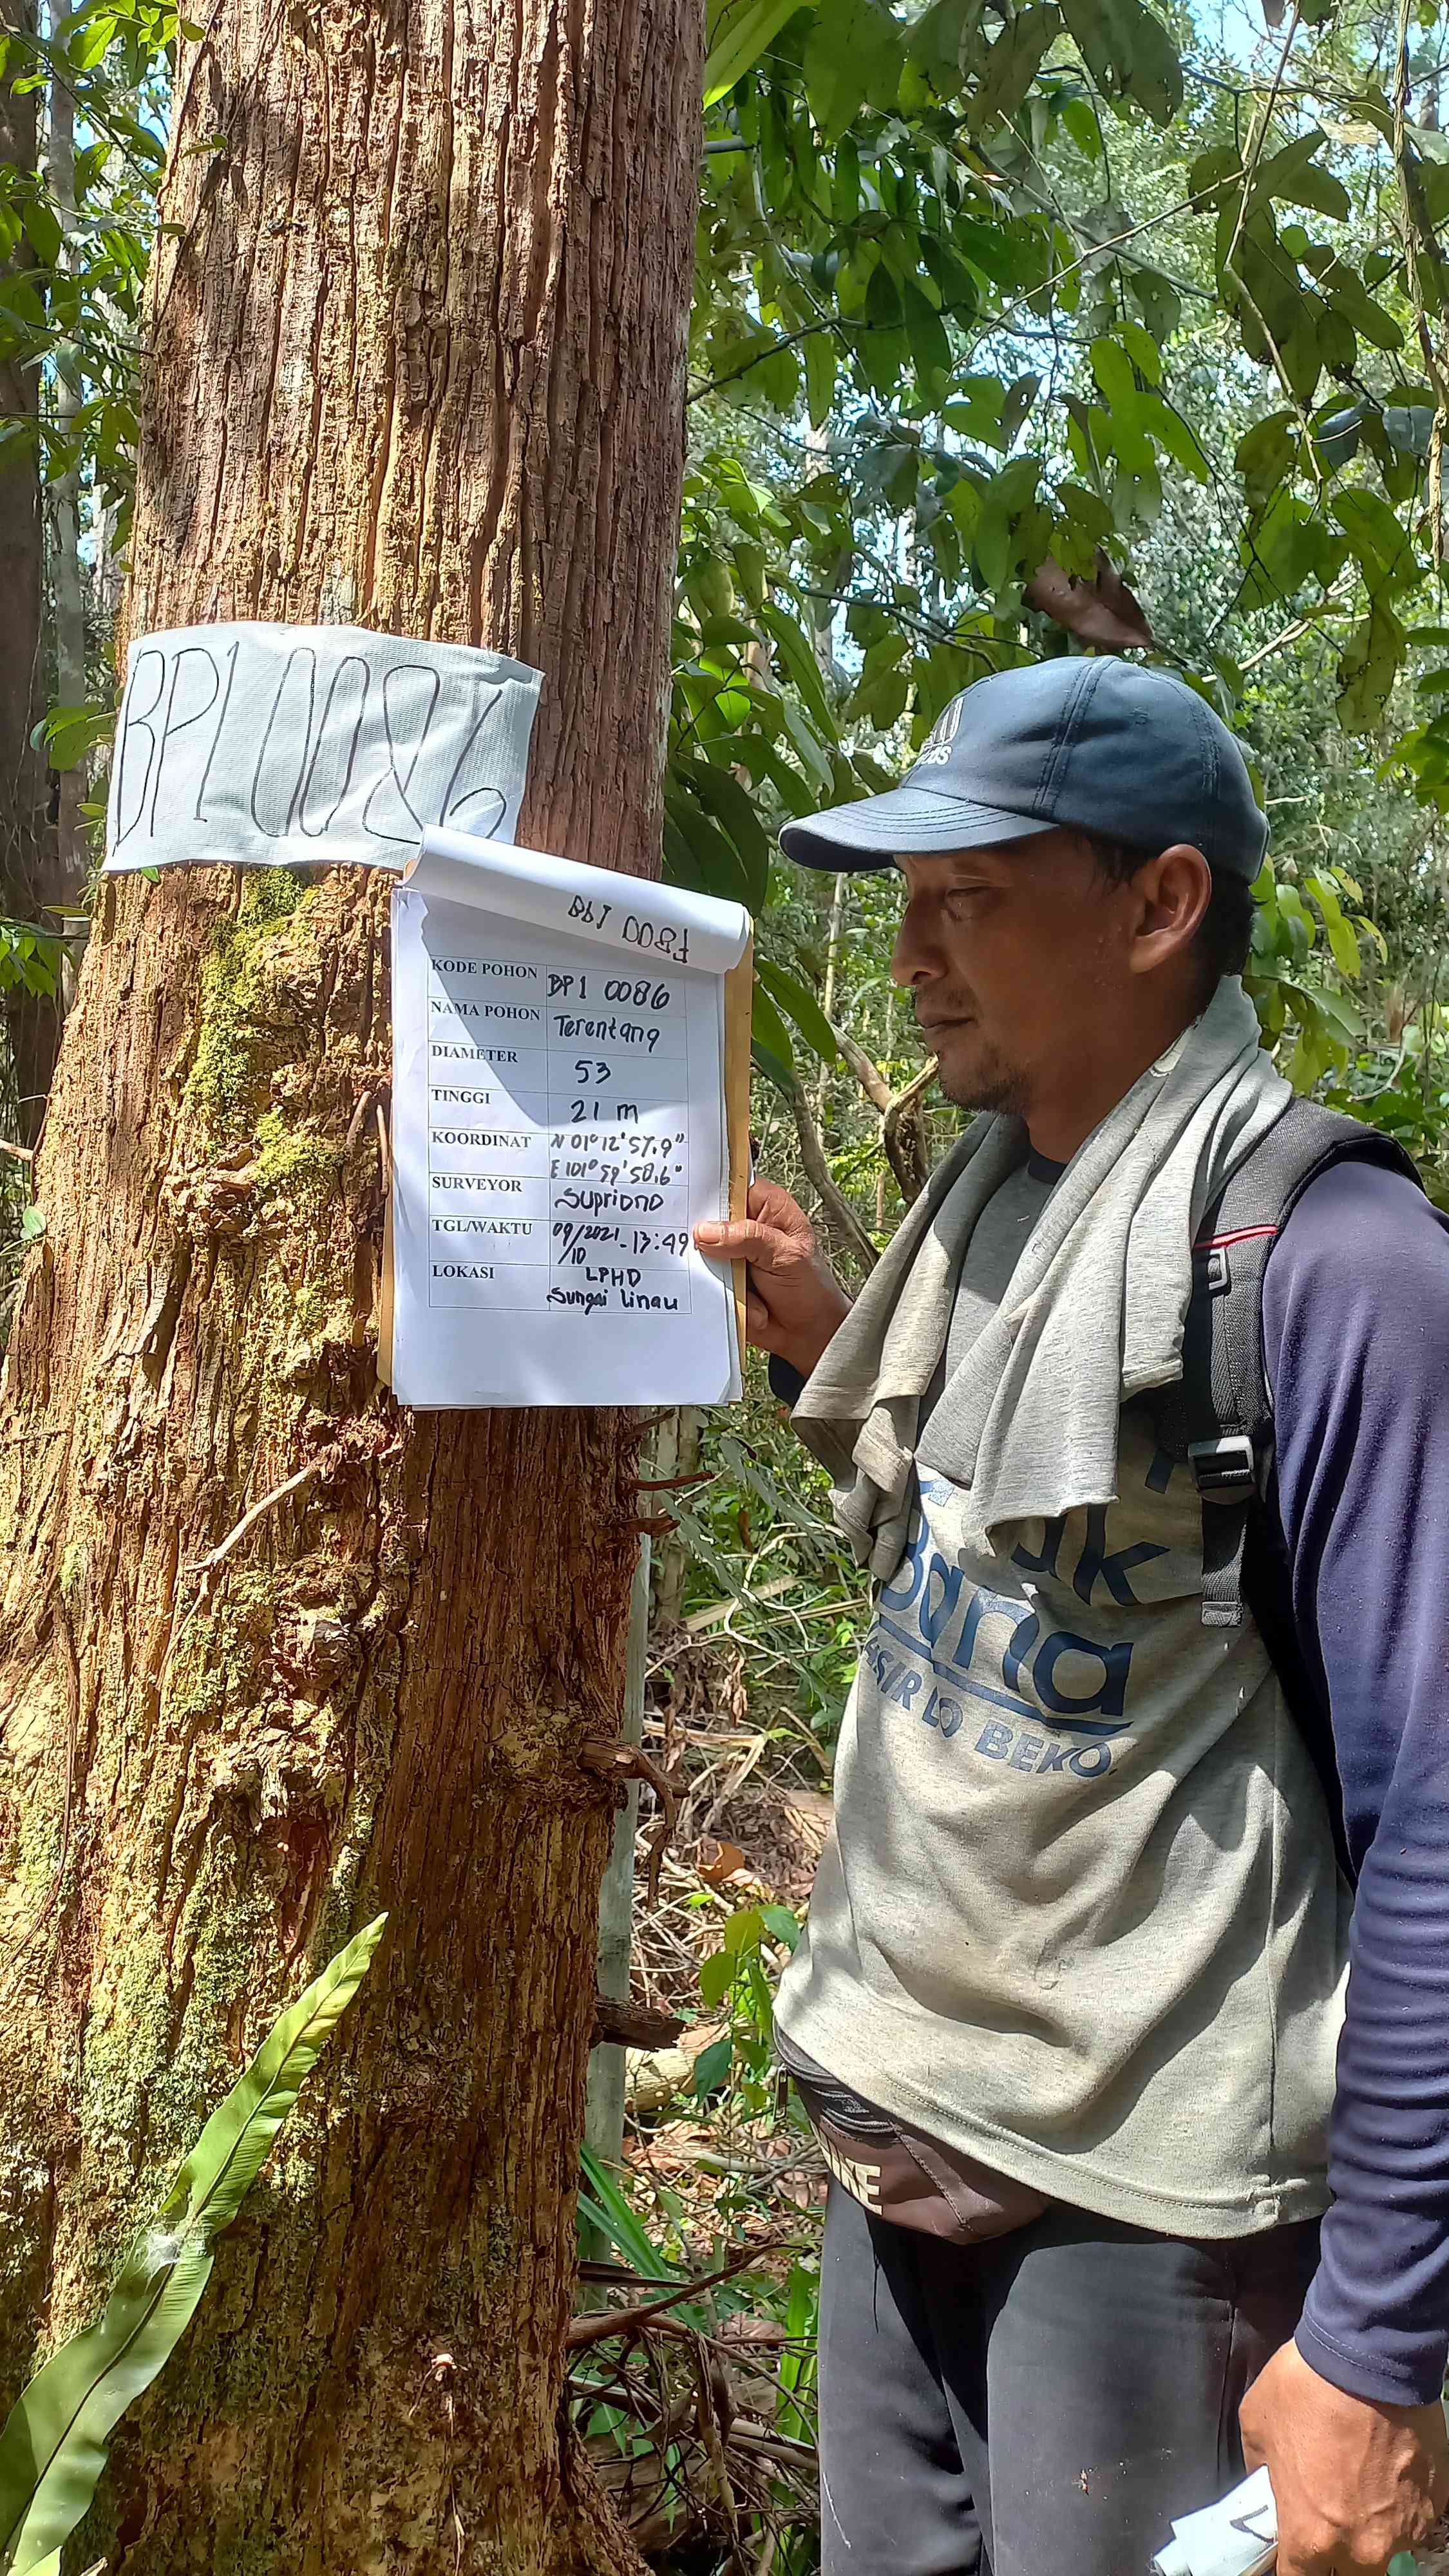 BP1 0086
KODE POHON BP1 0086
NAMA POHON Terentang
DIAMETER 53
TINGGI 21 m
KOORDINAT N 01° 12' 57.9"
E 101° 59' 58.6"
SURVEYOR Supriono
TGL/WAKTU 09/10/2021 - 13:49
LOKASI LPHD
Sungai Linau
Bana
BEKO